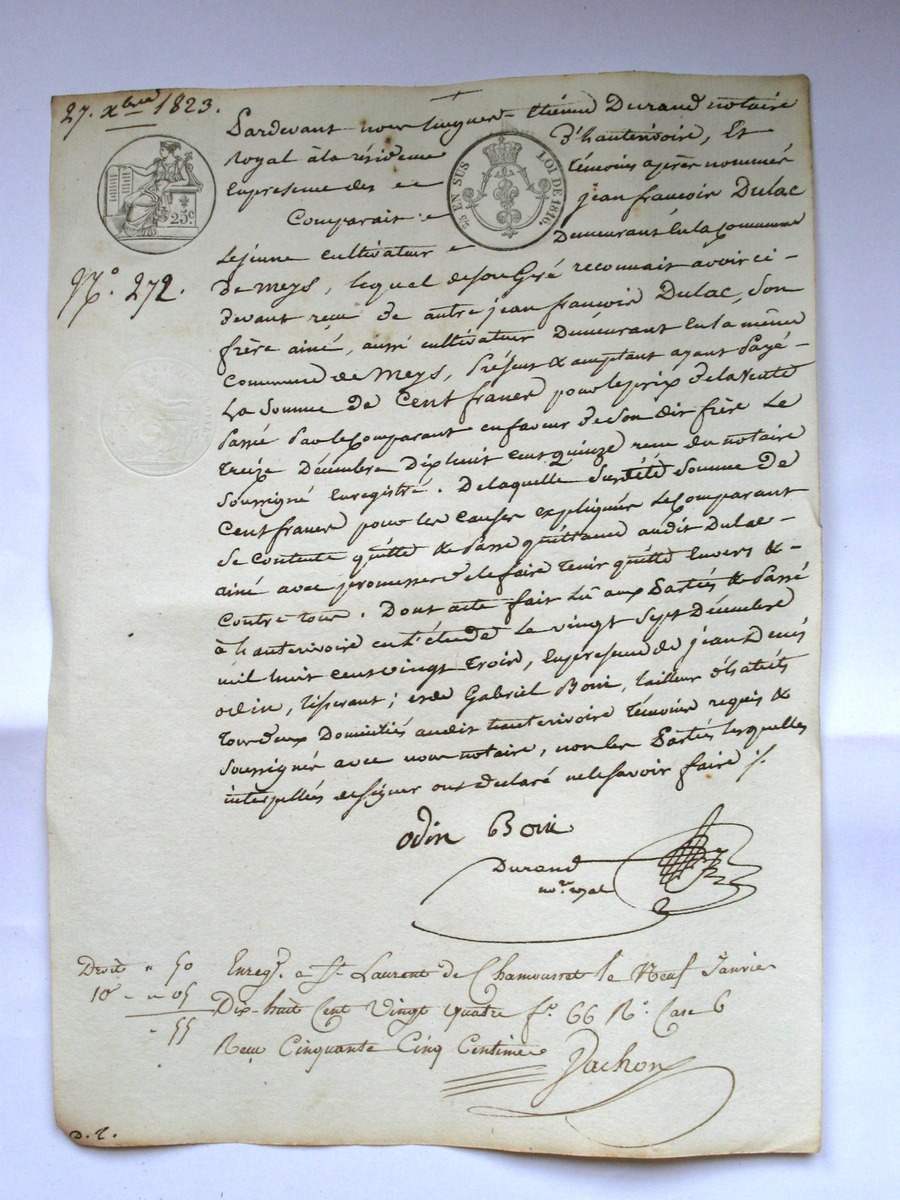 27. xbre 1823.
Pardevant nous hugues-étiéné Durand notaire
royal à la résidence d'hauterivoire, Et
25 EN SUS LOI DE 1816.
En presence des témoins après nommés
25c.
Comparait jean francois Dulac
Lejeune cultivateur Demeurant En la Commune
N.o 272.
de Meys, lequel de son Gré reconnait avoir ci-
devant reçu de autre jean francois Dulac, Son
frère ainé, aussi cultivateur Demeurant En la même
Commune de Meys, Présent & acceptant ayant Payé-
La Somme de Cent francs pour le prix de la Vente
Passée Par le Comparant en faveur de Son dit frère Le
Treize Décembre Dix huit cent quinze reçue du notaire
Soussigné Enregistré. De laquelle Susdite Somme de
Cent francs pour les causes expliquées Le Comparant
Se contente quitte & Passe quittance audit Dulac-
ainé avec promesse de le faire tenir quitte Envers &-
Contre tous. Dont acte fait Lu aux Parties & Passé
à hauterivoire en l'étude Le vingt Sept Décembre
mil huit cent vingt trois, En présence de jean Denis
odin, tisserant; et de Gabriel Boni, tailleur d'habits
tous deux Domiciliés audit hauterivoire témoins requis &
Soussignés avec nous notaire, non les Parties lesquelles
interpellées de signer ont déclaré ne le savoir faire ./.
odin Boni
Durand
no.re royal
Droit " 50 Enreg.é a St Laurent de Chamousset le Neuf Janvier
10e " 05 Dix-huit Cent Vingt quatre f.o 66 R.o Case 6
" 55
Reçu Cinquante Cinq Centimes Pachon
D. T.